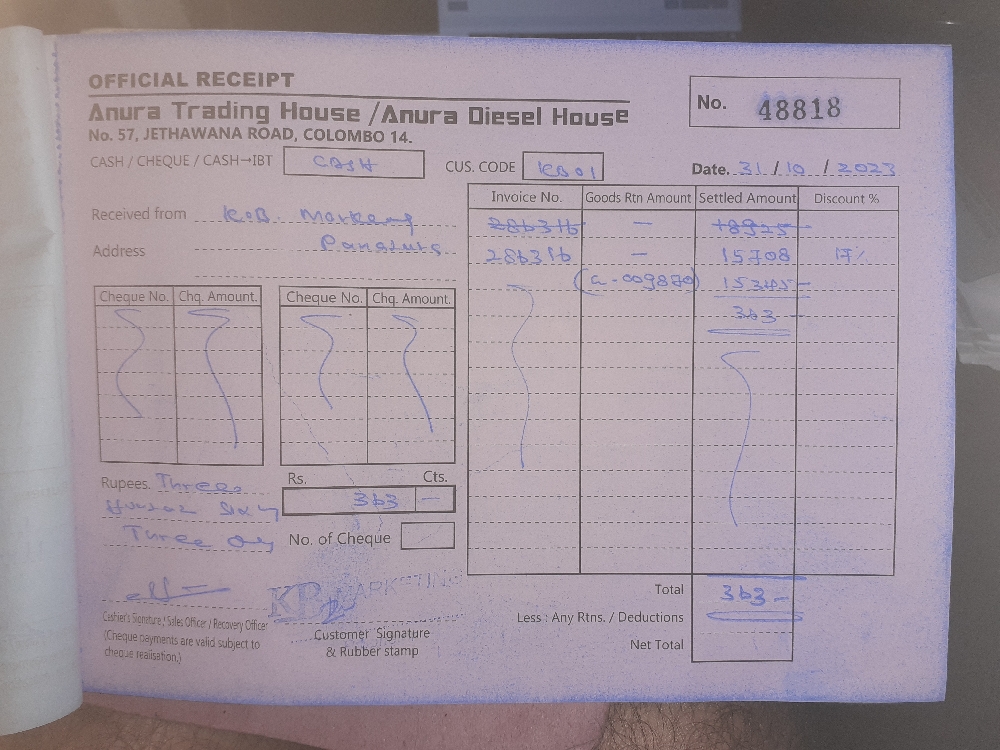 OFFICIAL RECEIPT
Anura Trading House / Anura Diesel House
No. 57, JETHAWANA ROAD, COLOMBO 14.
No. 48818
CASH / CHEQUE / CASH→IBT CASH
CUS. CODE KB01
Date. 31 / 10 / 2023
Received from K.B.
Address
Invoice No. Goods Rtn Amount Settled Amount Discount %
— 
— 15708 17%
15345
363
Cheque No. Chq. Amount. Cheque No. Chq. Amount.
Rupees. Three
Three
Rs. Cts.
363 —
No. of Cheque
Total 363 -
Less : Any Rtns. / Deductions
Net Total
Cashier's Signature / Sales Officer / Recovery Officer
(Cheque payments are valid subject to
cheque realisation.)
KB MARKETING
Customer Signature
& Rubber stamp